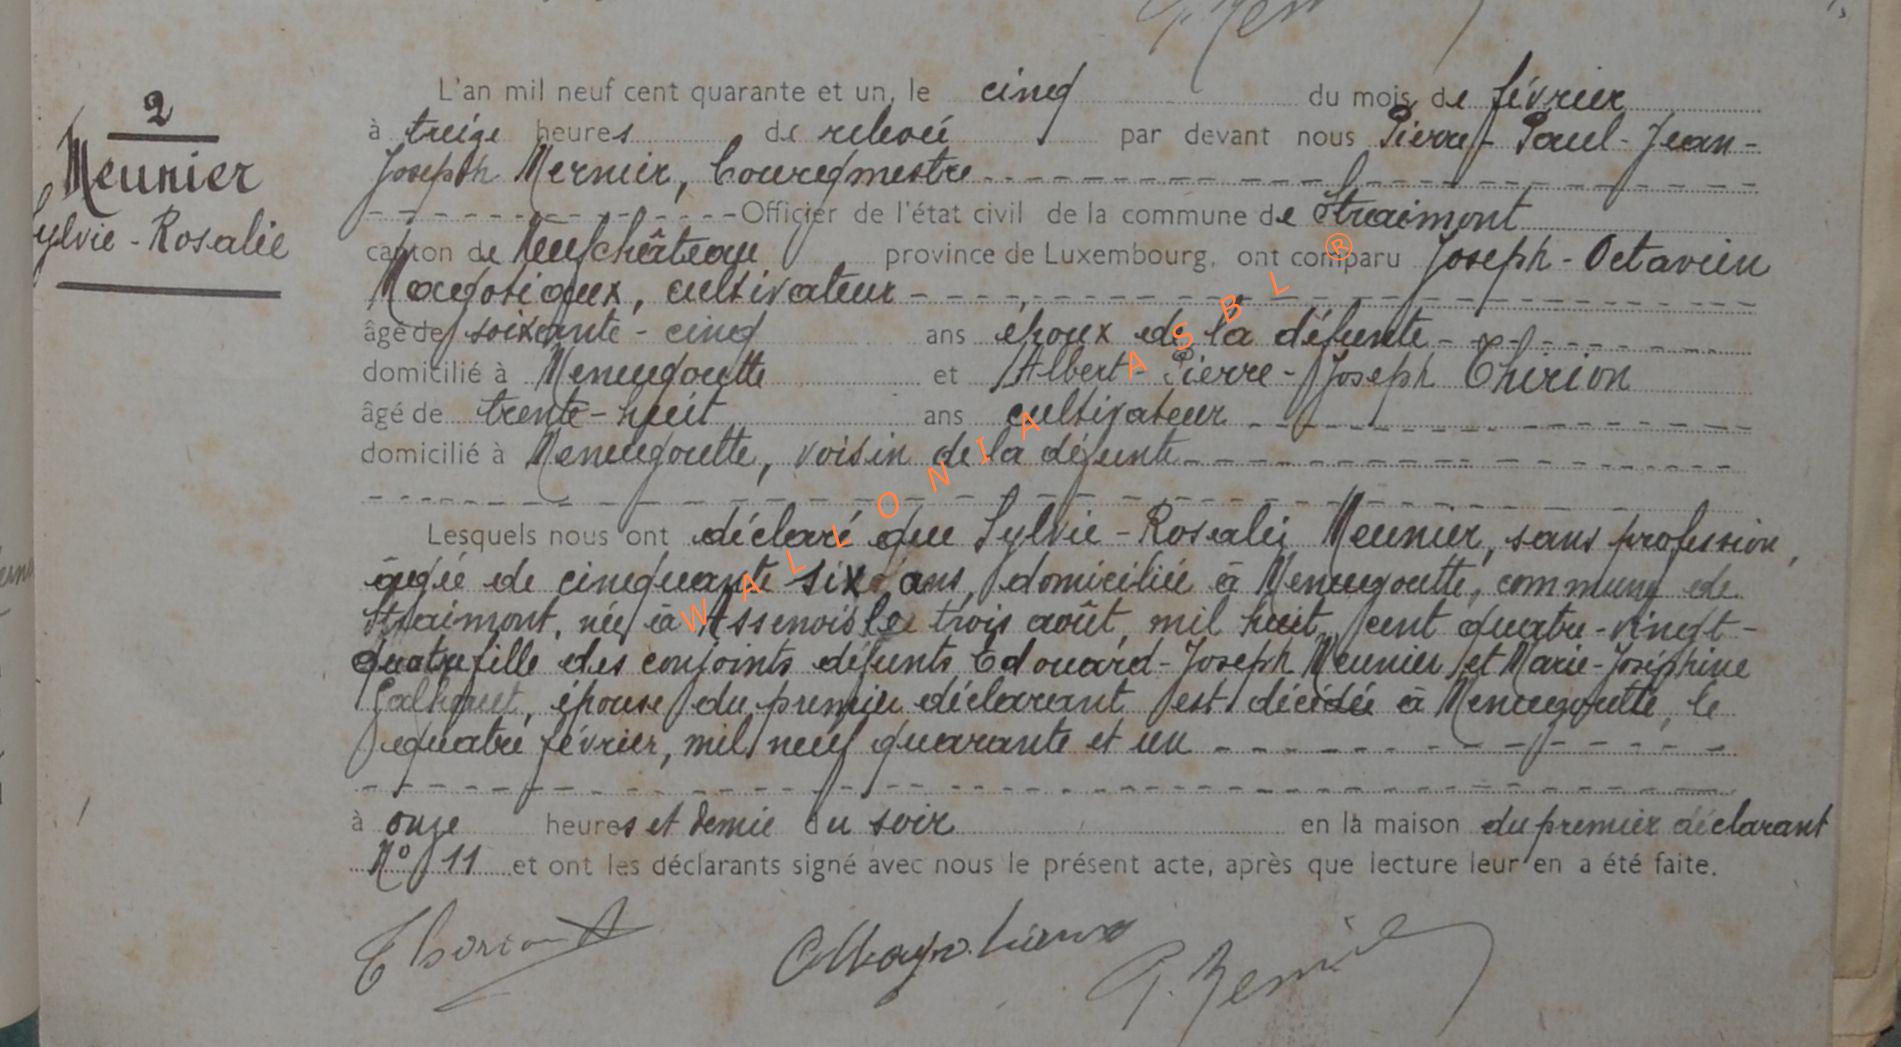 2
Meunier
Sylvie - Rosalie
L'an mil neuf cent quarante et un, le cinq du mois de février
à treize heures de relevée par devant nous Pierre - Paul - Jean -
Joseph Mernier, Bourgmestre
Officier de l'état civil de la commune de Straimont
canton de Neufchâteau province de Luxembourg, ont comparu Joseph - Octavien
Magotiaux, cultivateur
âgé de soixante - cinq ans époux de la défunte
domicilié à Menugoutte et Albert - Pierre - Joseph Thirion
âgé de trente - huit ans cultivateur
domicilié à Menugoutte, voisin de la défunte
Lesquels nous ont déclaré que Sylvie - Rosalie Meunier, sans profession,
âgée de cinquante six ans, domiciliée à Menugoutte, commune de
Straimont, née à Assenois le trois août mil huit cent quatre - vingt -
quatre fille des conjoints défunts Edouard - Joseph Meunier et Marie - Joséphine
épouse du premier déclarant est décédée à Menugoutte, le
quatre février, mil neuf quarante et un
à onze heures et demie du soir en la maison du premier déclarant
N° 11 et ont les déclarants signé avec nous le présent acte, après que lecture leur en a été faite.
WALLONIA ASBL ®